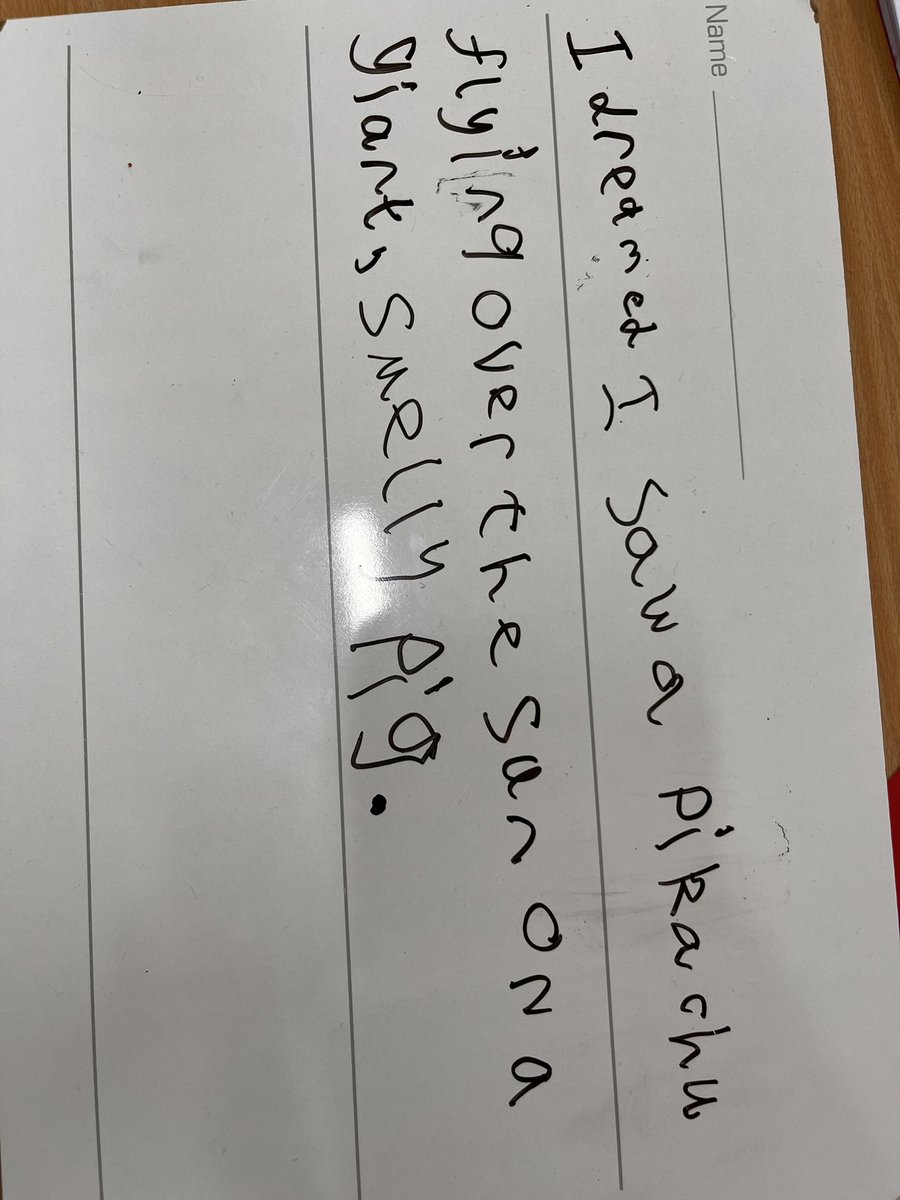 Name
I dreamed I saw a pikachu
flying over the sun on a
giant, smelly pig.